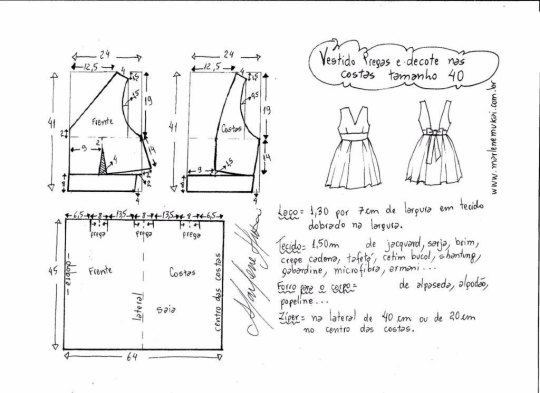 Vestido Pregas e decote nas
costas tamanho 40
24
12,5
4
1,5
19
41
2
Frente
9
4
14
2
24
12,5
4
19
41
Costas
9
1,5
14
4
www.marlenemukai.com.br
6,5 8 13,5 8 13,5 8 6,5
prega prega prega
45
dobra
Frente
lateral
Costas
saia
centro das costas
64
Marlene Mukai
Laço = 1,30 por 7cm de largura em tecido
dobrado na largura.
Tecido = 1,50m de jacquard, sarja, brim,
crepe cadena, tafetá, cetim bucol, shantung,
gabardine, microfibra, armani...
Forro para o corpo = de alpaseda, algodão,
popeline...
Zíper = na lateral de 40 cm ou de 20 cm
no centro das costas.